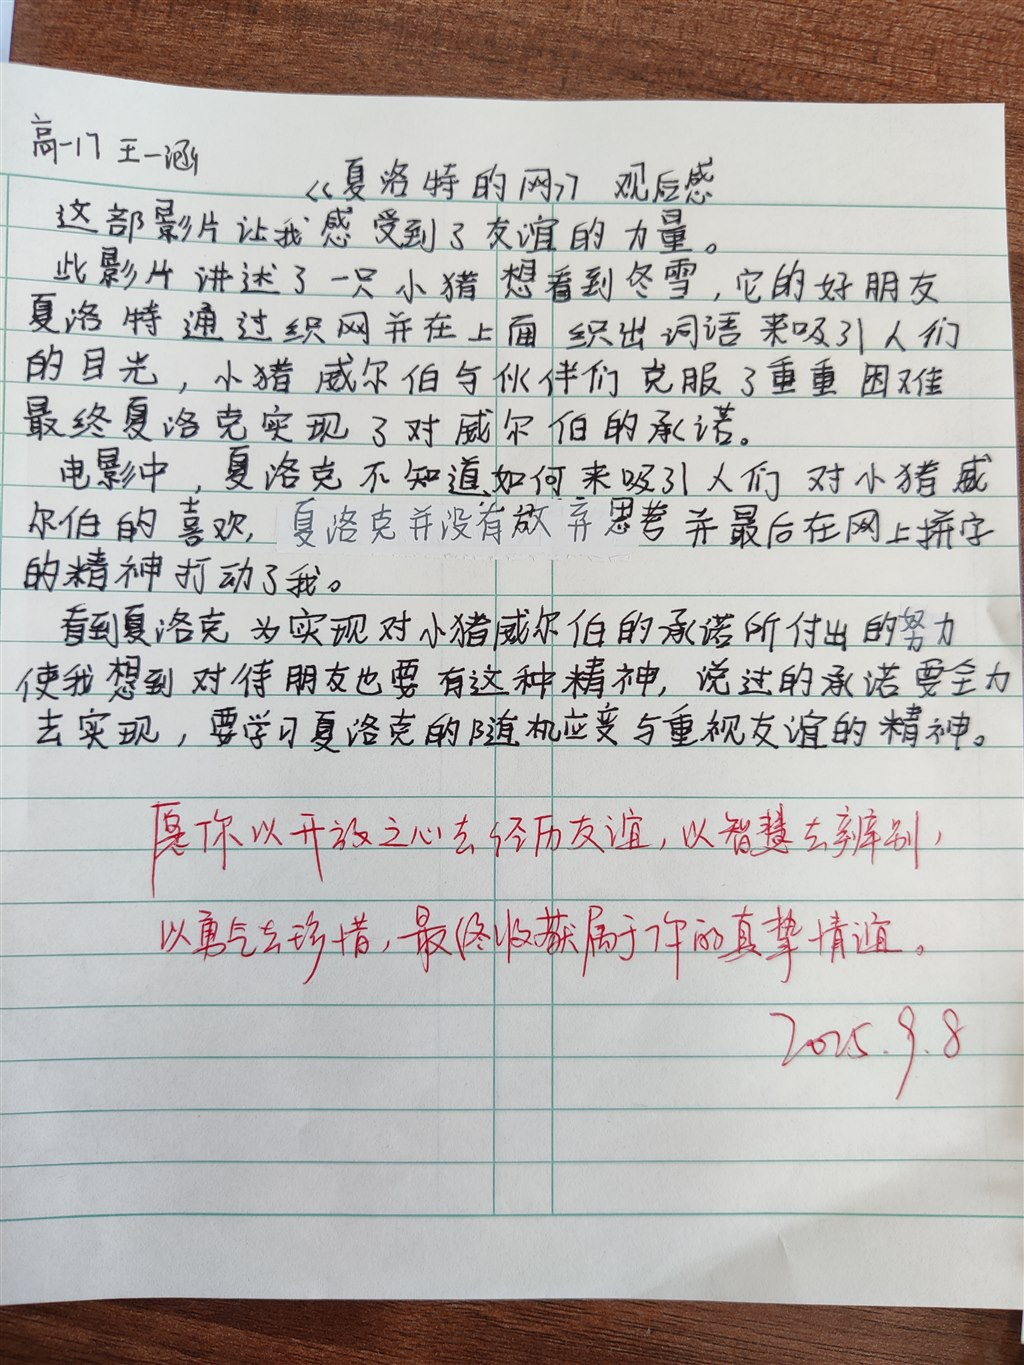 高一17 王一涵
《夏洛特的网》 观后感
这部影片让我感受到了友谊的力量。
此影片讲述了一只小猪想看到冬雪,它的好朋友
夏洛特通过织网并在上面织出词语来吸引人们
的目光,小猪威尔伯与伙伴们克服了重重困难
最终夏洛克实现了对威尔伯的承诺。
电影中,夏洛克不知道如何来吸引人们对小猪威
尔伯的喜欢,夏洛克并没有放弃思考并最后在网上拼字
的精神打动了我。
看到夏洛克为实现对小猪威尔伯的承诺所付出的努力
使我想到对待朋友也要有这种精神,说过的承诺要全力
去实现,要学习夏洛克的随机应变与重视友谊的精神。
愿你以开放之心去经历友谊,以智慧去辨别,
以勇气去珍惜,最终收获属于你的真挚情谊。
2025.9.8